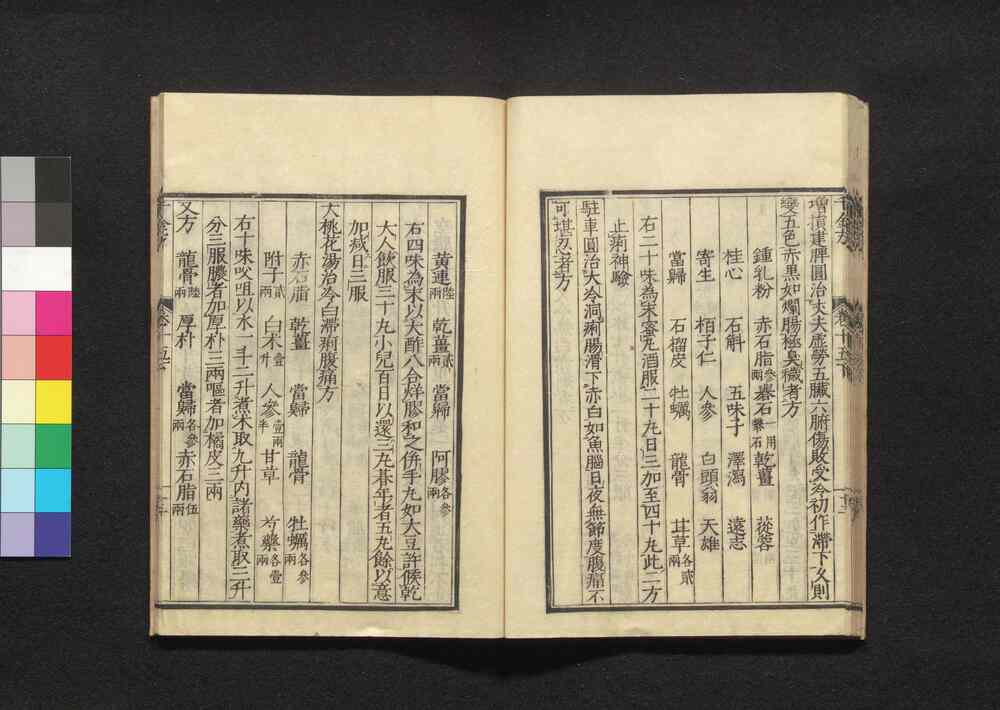 增損建脾圓治丈夫虛勞五臟六腑傷敗受冷初作滯下久則
變五色赤黒如爛腸極臭穢者方
鍾乳粉 赤石脂各參兩 礬石一用礜石 乾薑 蓯蓉
桂心 石斛 五味子 澤瀉 遠志
寄生 栢子仁 人參 白頭翁 天雄
當歸 石榴皮 牡蠣 龍骨 甘草各貳兩
右二十味為末蜜丸酒服二十丸日三加至四十丸此二方
止痢神驗
駐車圓治大冷洞痢腸滑下赤白如魚腦日夜無節度腹痛不
可堪忍者方
黃連陸兩 乾薑貳兩 當歸 阿膠各參兩
右四味為末以大酢八合烊膠和之併手丸如大豆許候乾
大人飲服三十丸小兒百日以還三丸朞年者五丸餘以意
加減日三服
大桃花湯治冷白滯痢腹痛方
赤石脂 乾薑 當歸 龍骨 牡蠣各參兩
附子貳兩 白朮壹升 人參壹兩半 甘草 芍藥各壹兩
右十味㕮咀以水一斗二升煮朮取九升内諸藥煮取三升
分三服膿者加厚朴三兩嘔者加橘皮三兩
又方 龍骨陸兩 厚朴 當歸各參兩 赤石脂伍兩